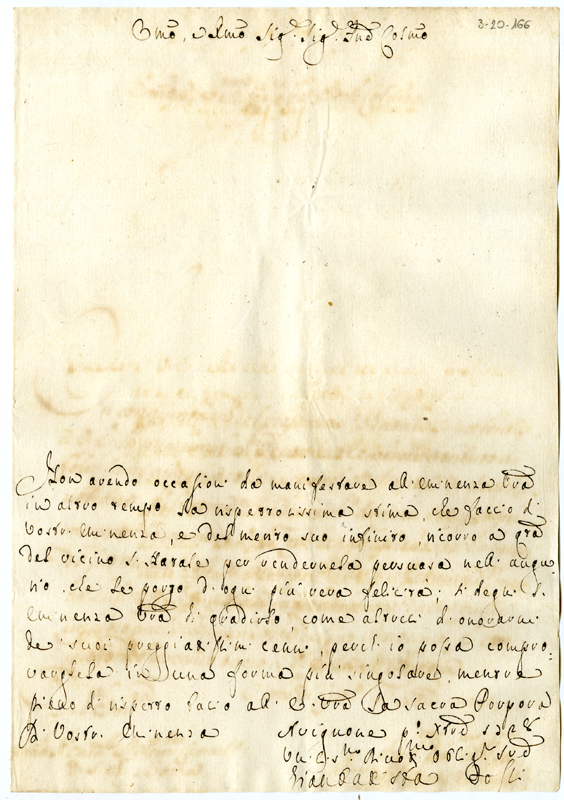 3-20-166
Emo, e Rmo Sig.r Sig.r Pnē Colmo
Non avendo occasion' da manifestare all Eminenza Vrā
in altro tempo la rispettosissima stima, che faccio di
Vostr. Eminenza, e del merito suo infinito, ricorro a
del vicino S. Natale per rendernela persuasa nell augu-
rio, che le porgo d'ogni più vera felicità; si degni S.
Eminenza Vrā di gradirlo, come altresi d'onorarmi
de suoi preggiatissimi cenni, perche io possa compro-
vargliela in una forma più singolare, mentre
pieno di rispetto bacio all E. Vrā la Sacra Porpora
Di Vostr. Eminenza
Avignone p.º Xbrē
Giambattista